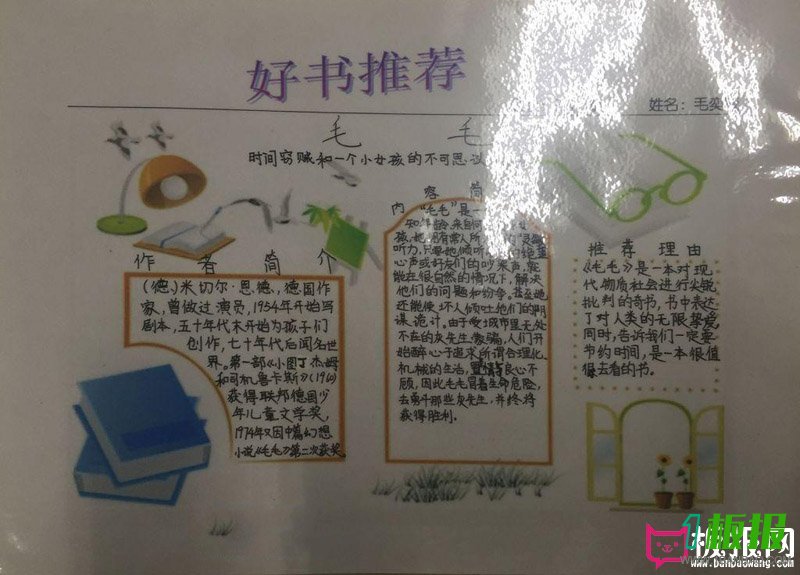 好书推荐
姓名：毛奕
毛 毛
时间窃贼和一个小女孩的不可思议
作者简介
(德)米切尔·恩德，德国作
家，曾做过演员，1954年开始写
剧本，五十年代末开始为孩子们
创作，七十年代后闻名世
界。第一部《小图丁杰姆
和司机鲁卡斯》(1960)
获得联邦德国少
年儿童文学奖，
1974年又因中篇幻想
小说《毛毛》第二次获奖
内容简
“毛毛”是一
知年龄，来自何
孩，她拥有常人所
听力，只要她倾听
心声或好友们的吵架声，就
能在很自然的情况下，解决
他们的问题和纷争，甚至她
还能使坏人倾吐他们的阴
谋诡计。由于受城市里无处
不在的灰先生蒙骗，人们开
始醉心于追求所谓合理化、
机械的生活，良心不
顾，因此毛毛冒着生命危险，
去勇斗那些灰先生，并终将
获得胜利。
推荐理由
《毛毛》是一本对现
代物质社会进行尖锐
批判的奇书，书中表达
了对人类的无限挚爱，
同时，告诉我们一定要
节约时间，是一本很值
得去看的书。
板报
板报网
www.banbaowang.com